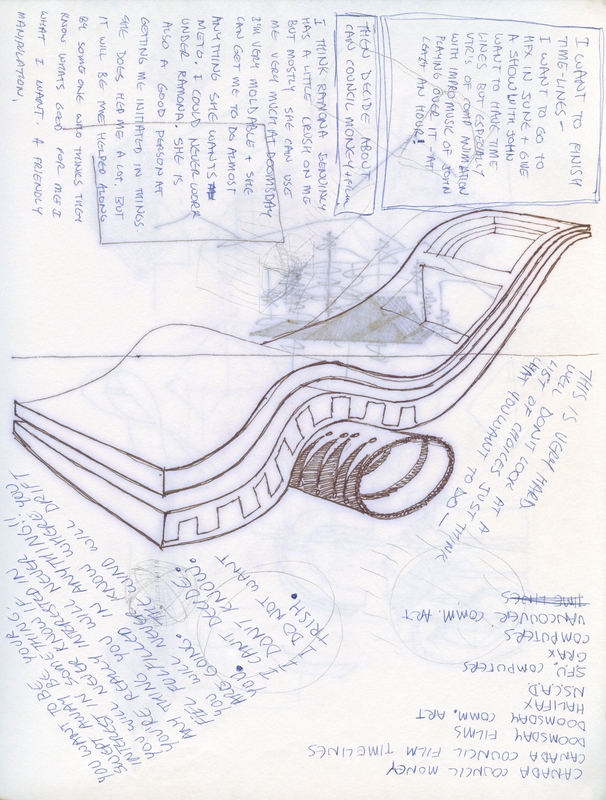 I WANT TO FINISH
TIME-LINES—
I WANT TO GO TO
HFX IN JUNE + GIVE
A SHOW WITH JOHN
WANT TO HAVE TIME
LINES BUT ESPECIALLY
VTR'S OF COMP ANIMATION
WITH IMPRO MUSIC OF JOHN
PLAYING OVER IT AT
LEAST AN HOUR!
THEN DECIDE ABOUT
CAN COUNCIL MONEY + FILM
I THINK RAMONA GENUINLY
HAS A LITTLE CRUSH ON ME
BUT MOSTLY SHE CAN USE
ME VERY MUCH AT DOOMSDAY
I'M VERY MOLDABLE + SHE
CAN GET ME TO DO ALMOST
ANYTHING SHE WANTS
ME TO, I COULD NEVER WORK
UNDER RAMONA. SHE IS
ALSO A GOOD PERSON AT
GETTING ME INITIATED IN THINGS.
SHE DOES HEAR ME A LOT. BUT
IT WILL BE ME HELPED ALONG
BY SOMEONE WHO THINKS THEY
KNOW WHATS GOOD FOR ME I
WHAT I WANT. A FRIENDLY
MANIPULATION.
THIS IS VERY HARD
WELL DON'T LOOK AT A
LIST OF CHOICES JUST THINK
WHAT YOU WANT TO DO—
CANADA COUNCIL MONEY
CANADA COUNCIL FILM TIMELINES
DOOMSDAY FILMS
DOOMSDAY COMM. ART
HALIFAX
N.S.C.A.D.
SFU. COMPUTERS
GRAX
COMPUTERS
VANCOUVER COMM. ART
TIME LINES
YOU WANT TO BE YOUR
SWEPT AWAY SOMETHING.
INTEREST IN KNOW IF
YOU WILL NEVER INTERESTED IN
YOU'RE REALLY YOU WILL NEVER
ANY THING
FEEL FULFILLED IN ANYTHING!!
YOU WILL NEVER KNOW WHERE YOU
ARE GOING. THE WIND WILL DRIFT
YOU.
I CAN'T DECIDE.
I DON'T KNOW.
I DO NOT WANT
TRISH.